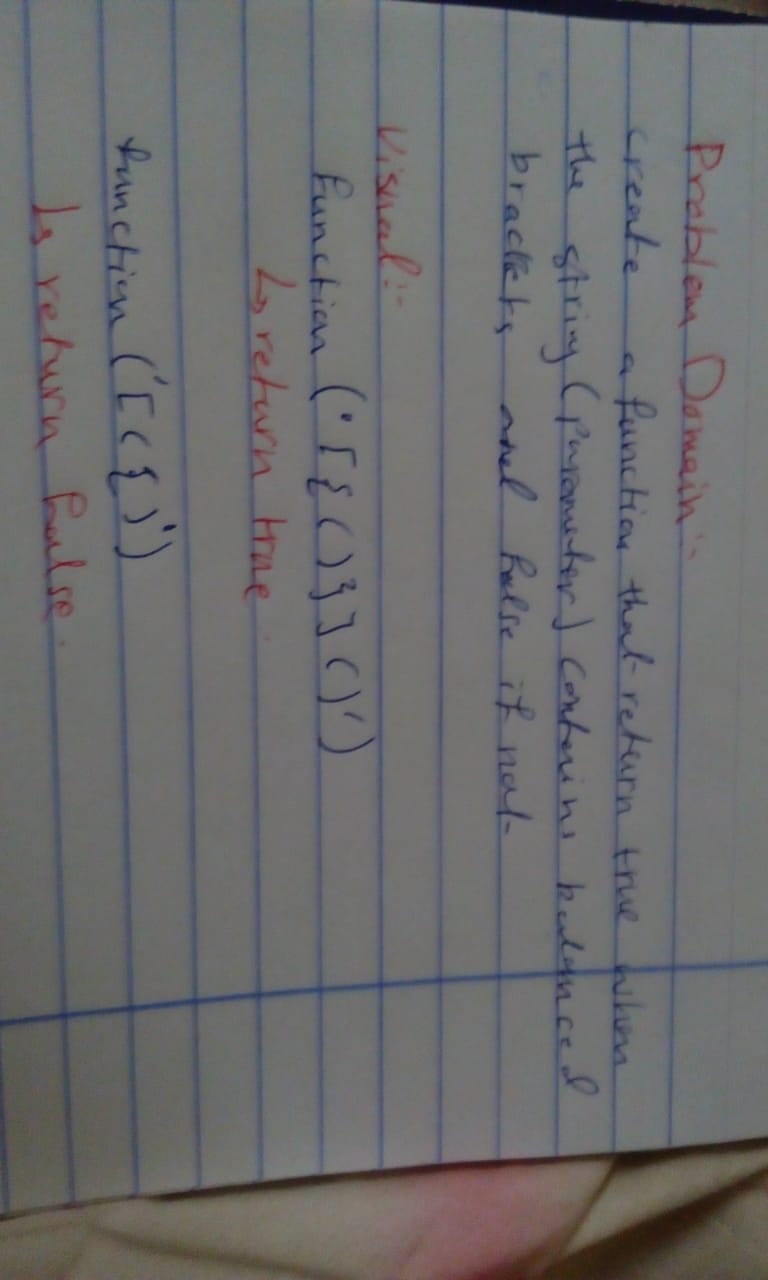 Problem Domain:-
create a function that return true when
the string (parameter) contains balanced
brackets and false if not
Visual:-
function ('[{()}]()')
↳ return true.
function ('[({)')
↳ return false.